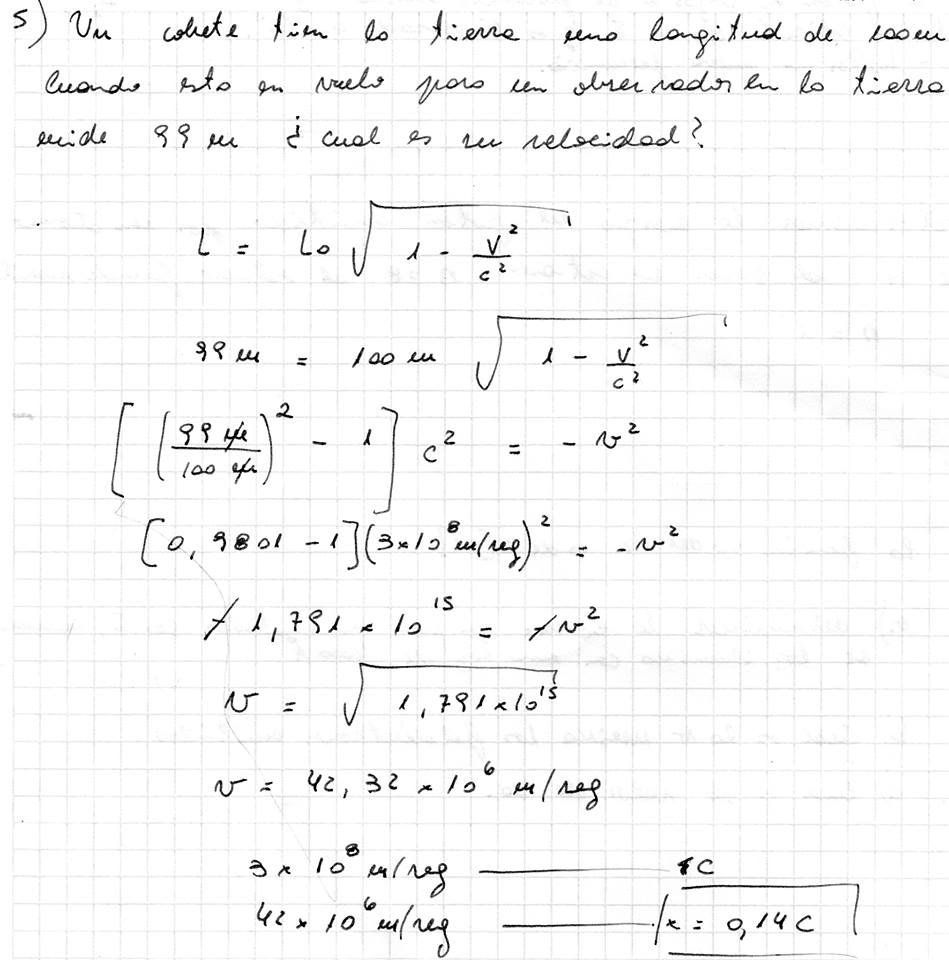 5) Un cohete tien la tierra una longitud de 100m
Cuando esta en vuelo para un observador en la tierra
mide 99 m ¿ cual es su velocidad?
L = Lo √(1 - V²/c²)
99 m = 100 m √(1 - V²/c²)
[(99 m/100 m)² - 1] c² = - v²
[0,9801 - 1](3×10⁸ m/seg)² = - v²
- 1,791 × 10¹⁵ = - v²
v = √(1,791×10¹⁵)
v = 42,32 × 10⁶ m/seg
3 × 10⁸ m/seg ——— 1C
42 × 10⁶ m/seg ——— /x = 0,14 C